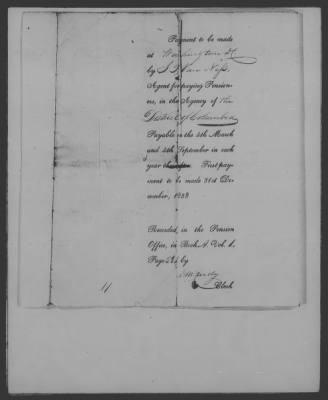 Payment to be made
at Washington DC
by J. P. Van Ness,
Agent for paying Pension-
ers, in the Agency of the
District of Columbia
Payable on the 4th March
and 4th September in each
year First pay-
ment to be made 31st De-
cember, 1838
Recorded, in the Pension
Office, in Book A. Vol.
Page by
Clerk
11